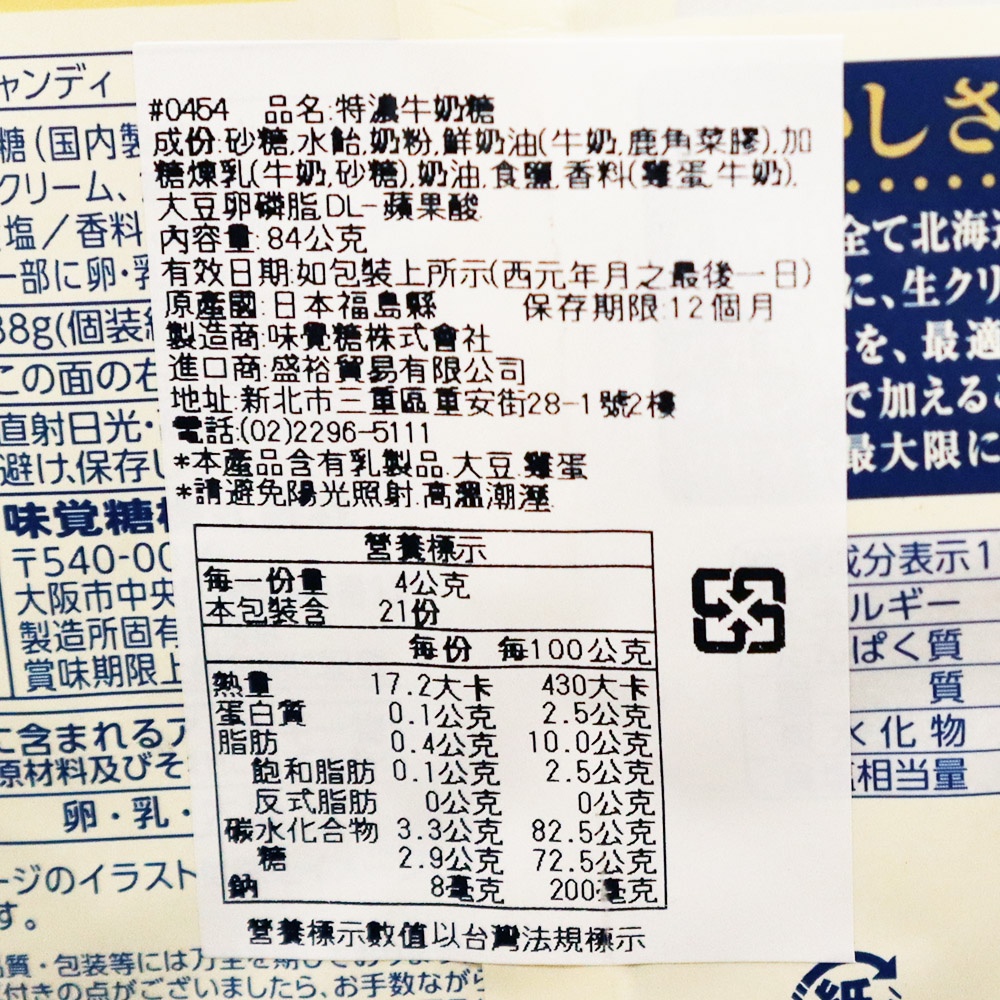 #0454 品名:特濃牛奶糖
成份:砂糖,水飴,奶粉,鮮奶油(牛奶,鹿角菜膠),加
糖煉乳(牛奶,砂糖),奶油,食鹽,香料(雞蛋,牛奶),
大豆卵磷脂,DL-蘋果酸
內容量:84公克
有效日期:如包裝上所示(西元年月之最後一日)
原產國:日本福島縣 保存期限:12個月
製造商:味覺糖株式會社
進口商:盛裕貿易有限公司
地址:新北市三重區重安街28-1號2樓
電話:(02)2296-5111
*本產品含有乳製品.大豆.雞蛋
*請避免陽光照射.高溫潮溼
營養標示
每一份量 4公克
本包裝含 21份
每份 每100公克
熱量 17.2大卡 430大卡
蛋白質 0.1公克 2.5公克
脂肪 0.4公克 10.0公克
飽和脂肪 0.1公克 2.5公克
反式脂肪 0公克 0公克
碳水化合物 3.3公克 82.5公克
糖 2.9公克 72.5公克
鈉 8毫克 200毫克
營養標示數值以台灣法規標示
ャンディ
糖(国内製
クリーム、
塩/香料
一部に卵・乳
88g(個装
この面の右
直射日光・
避け、保存し
味覚糖
〒540-00
大阪市中央
製造所固有
賞味期限上
に含まれるア
原材料及びそ
卵・乳・
ージのイラスト
す。
品質・包装等には万全を期しており
付きの点がございましたら、お手数ながら
しさ
全て北海道
に、生クリ
を、最適
で加える
最大限に
成分表示1
ルギー
ぱく質
質
水化物
相当量
紙